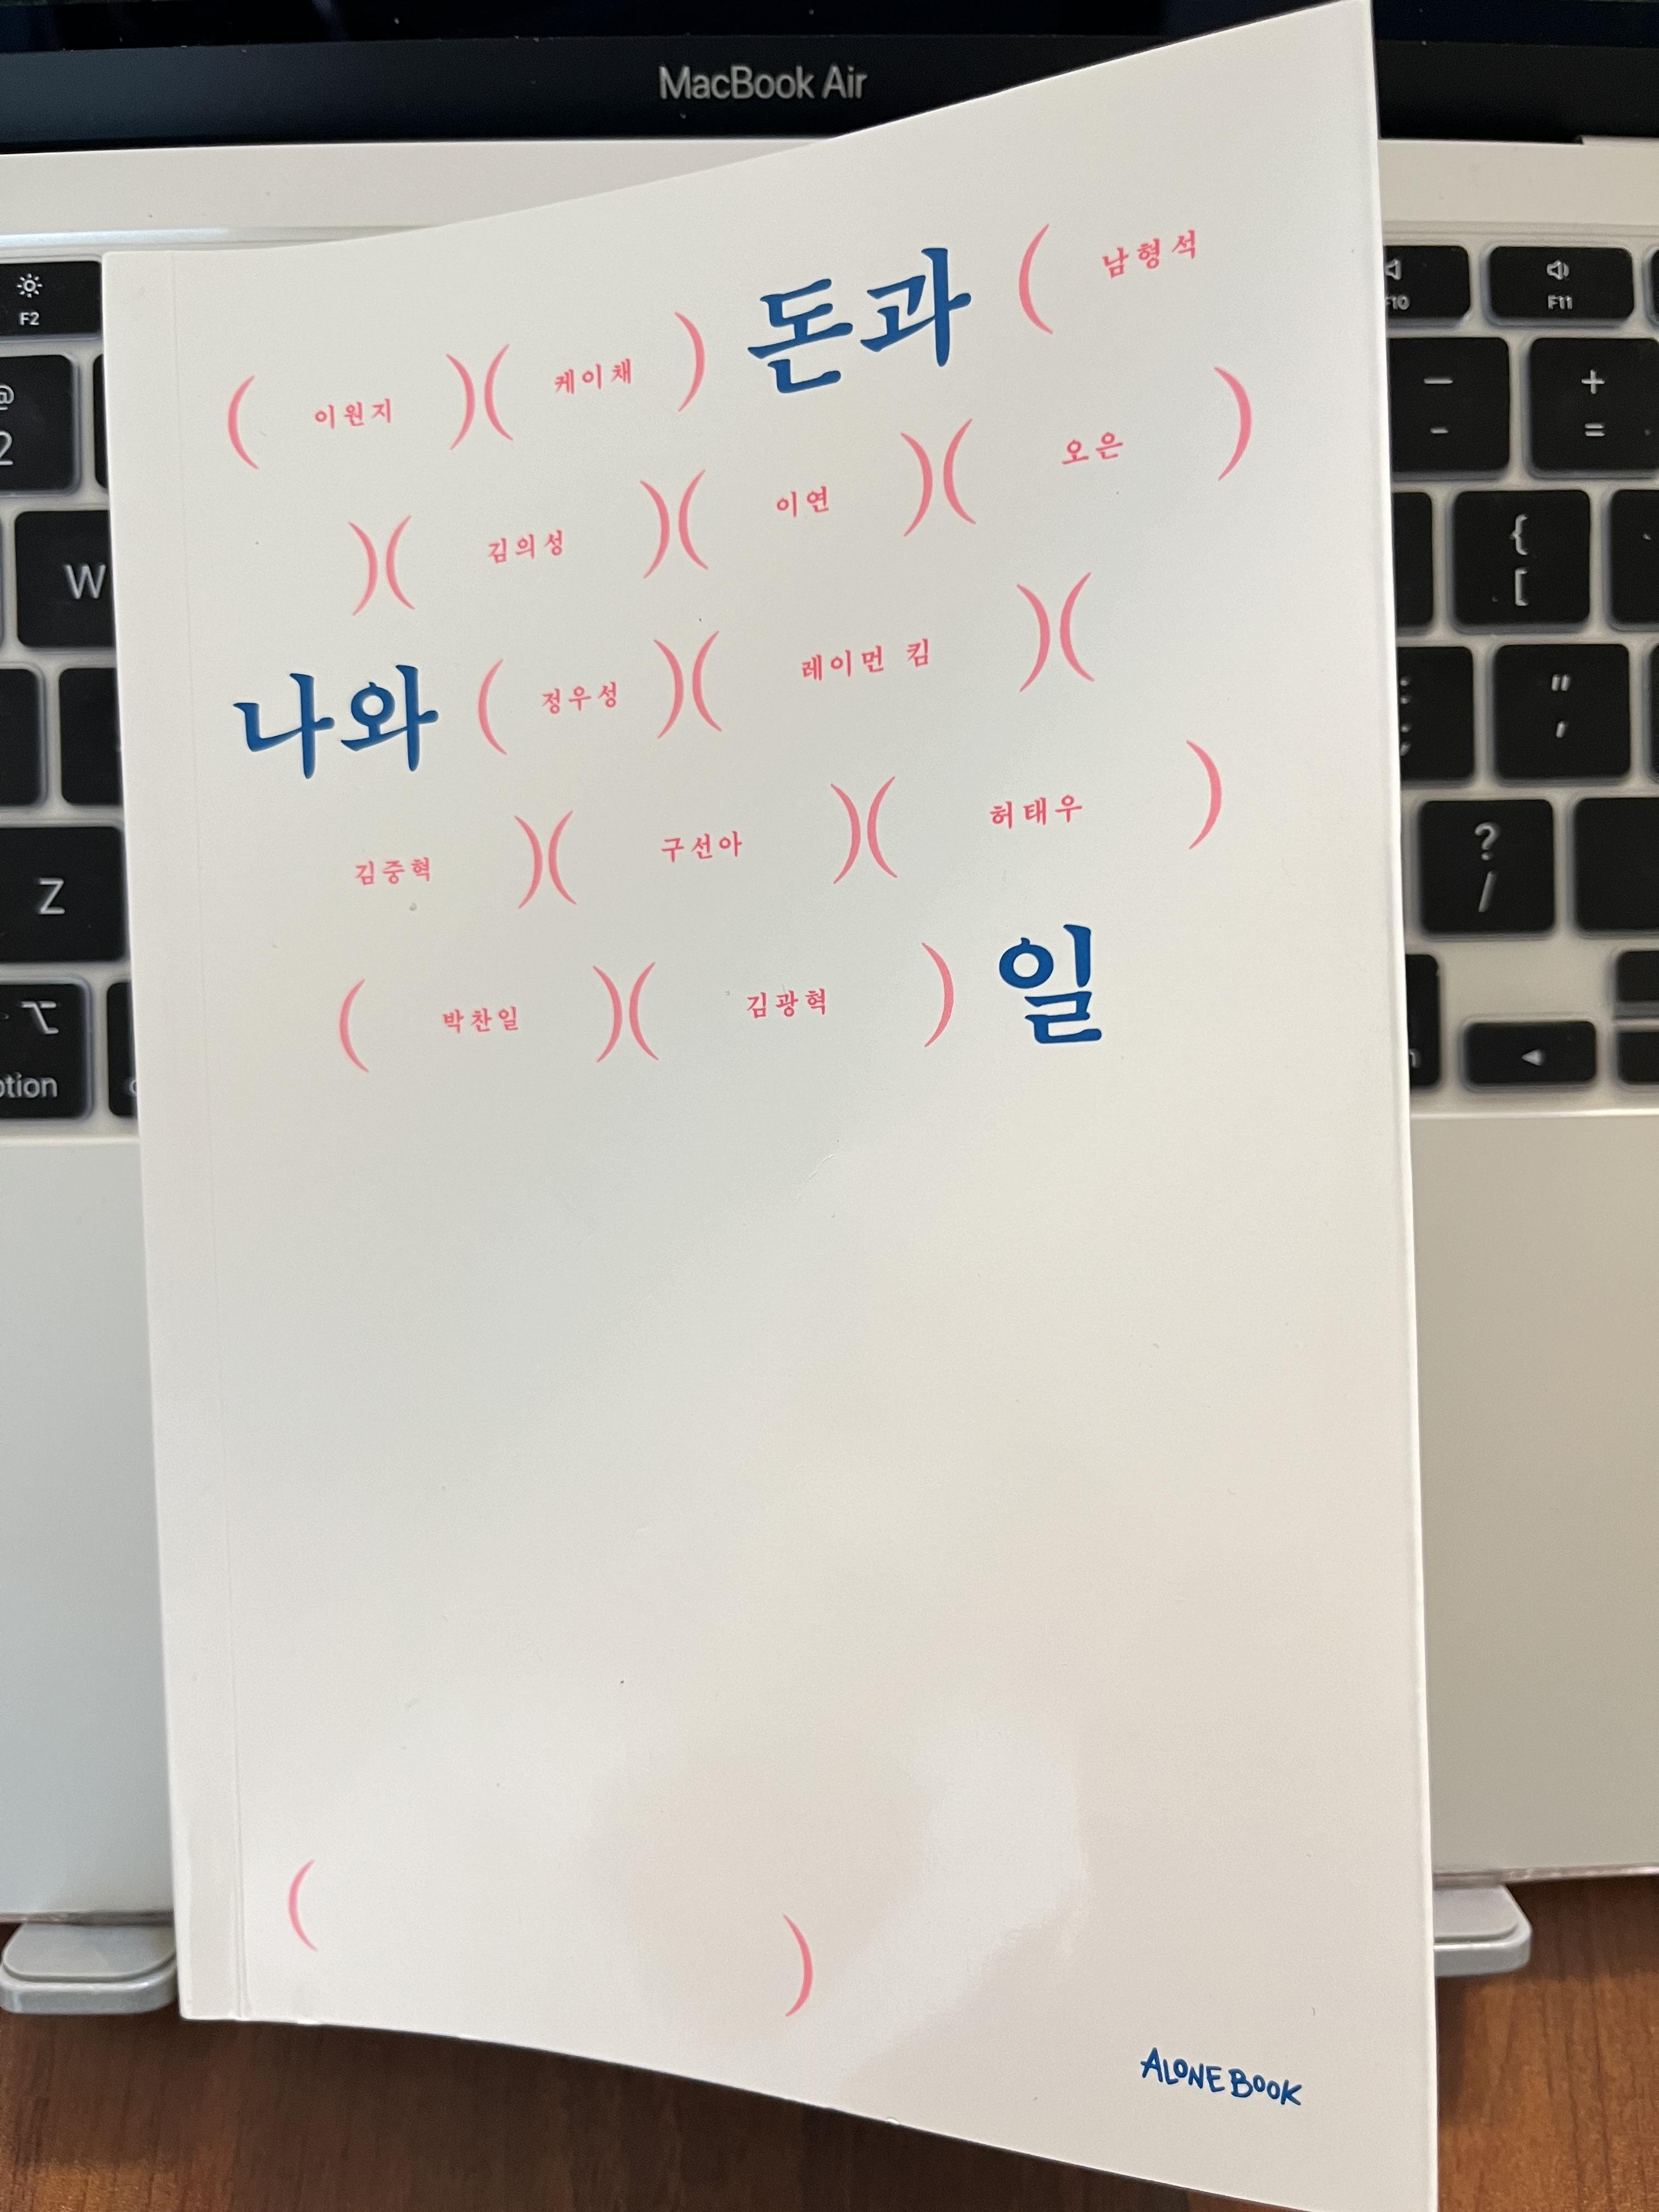 MacBook Air
(이원지)(케이채) 돈과 (남형석
)(김의성)(이연)(오은)
나와 (정우성)(레이먼 킴)(
김중혁)(구선아)(허태우)
(박찬일)(김광혁) 일
( )
ALONE BOOK
F2
F10
F11
@
2
W
Z
option
-
-
+
=
{
[
:
;
"
'
?
/